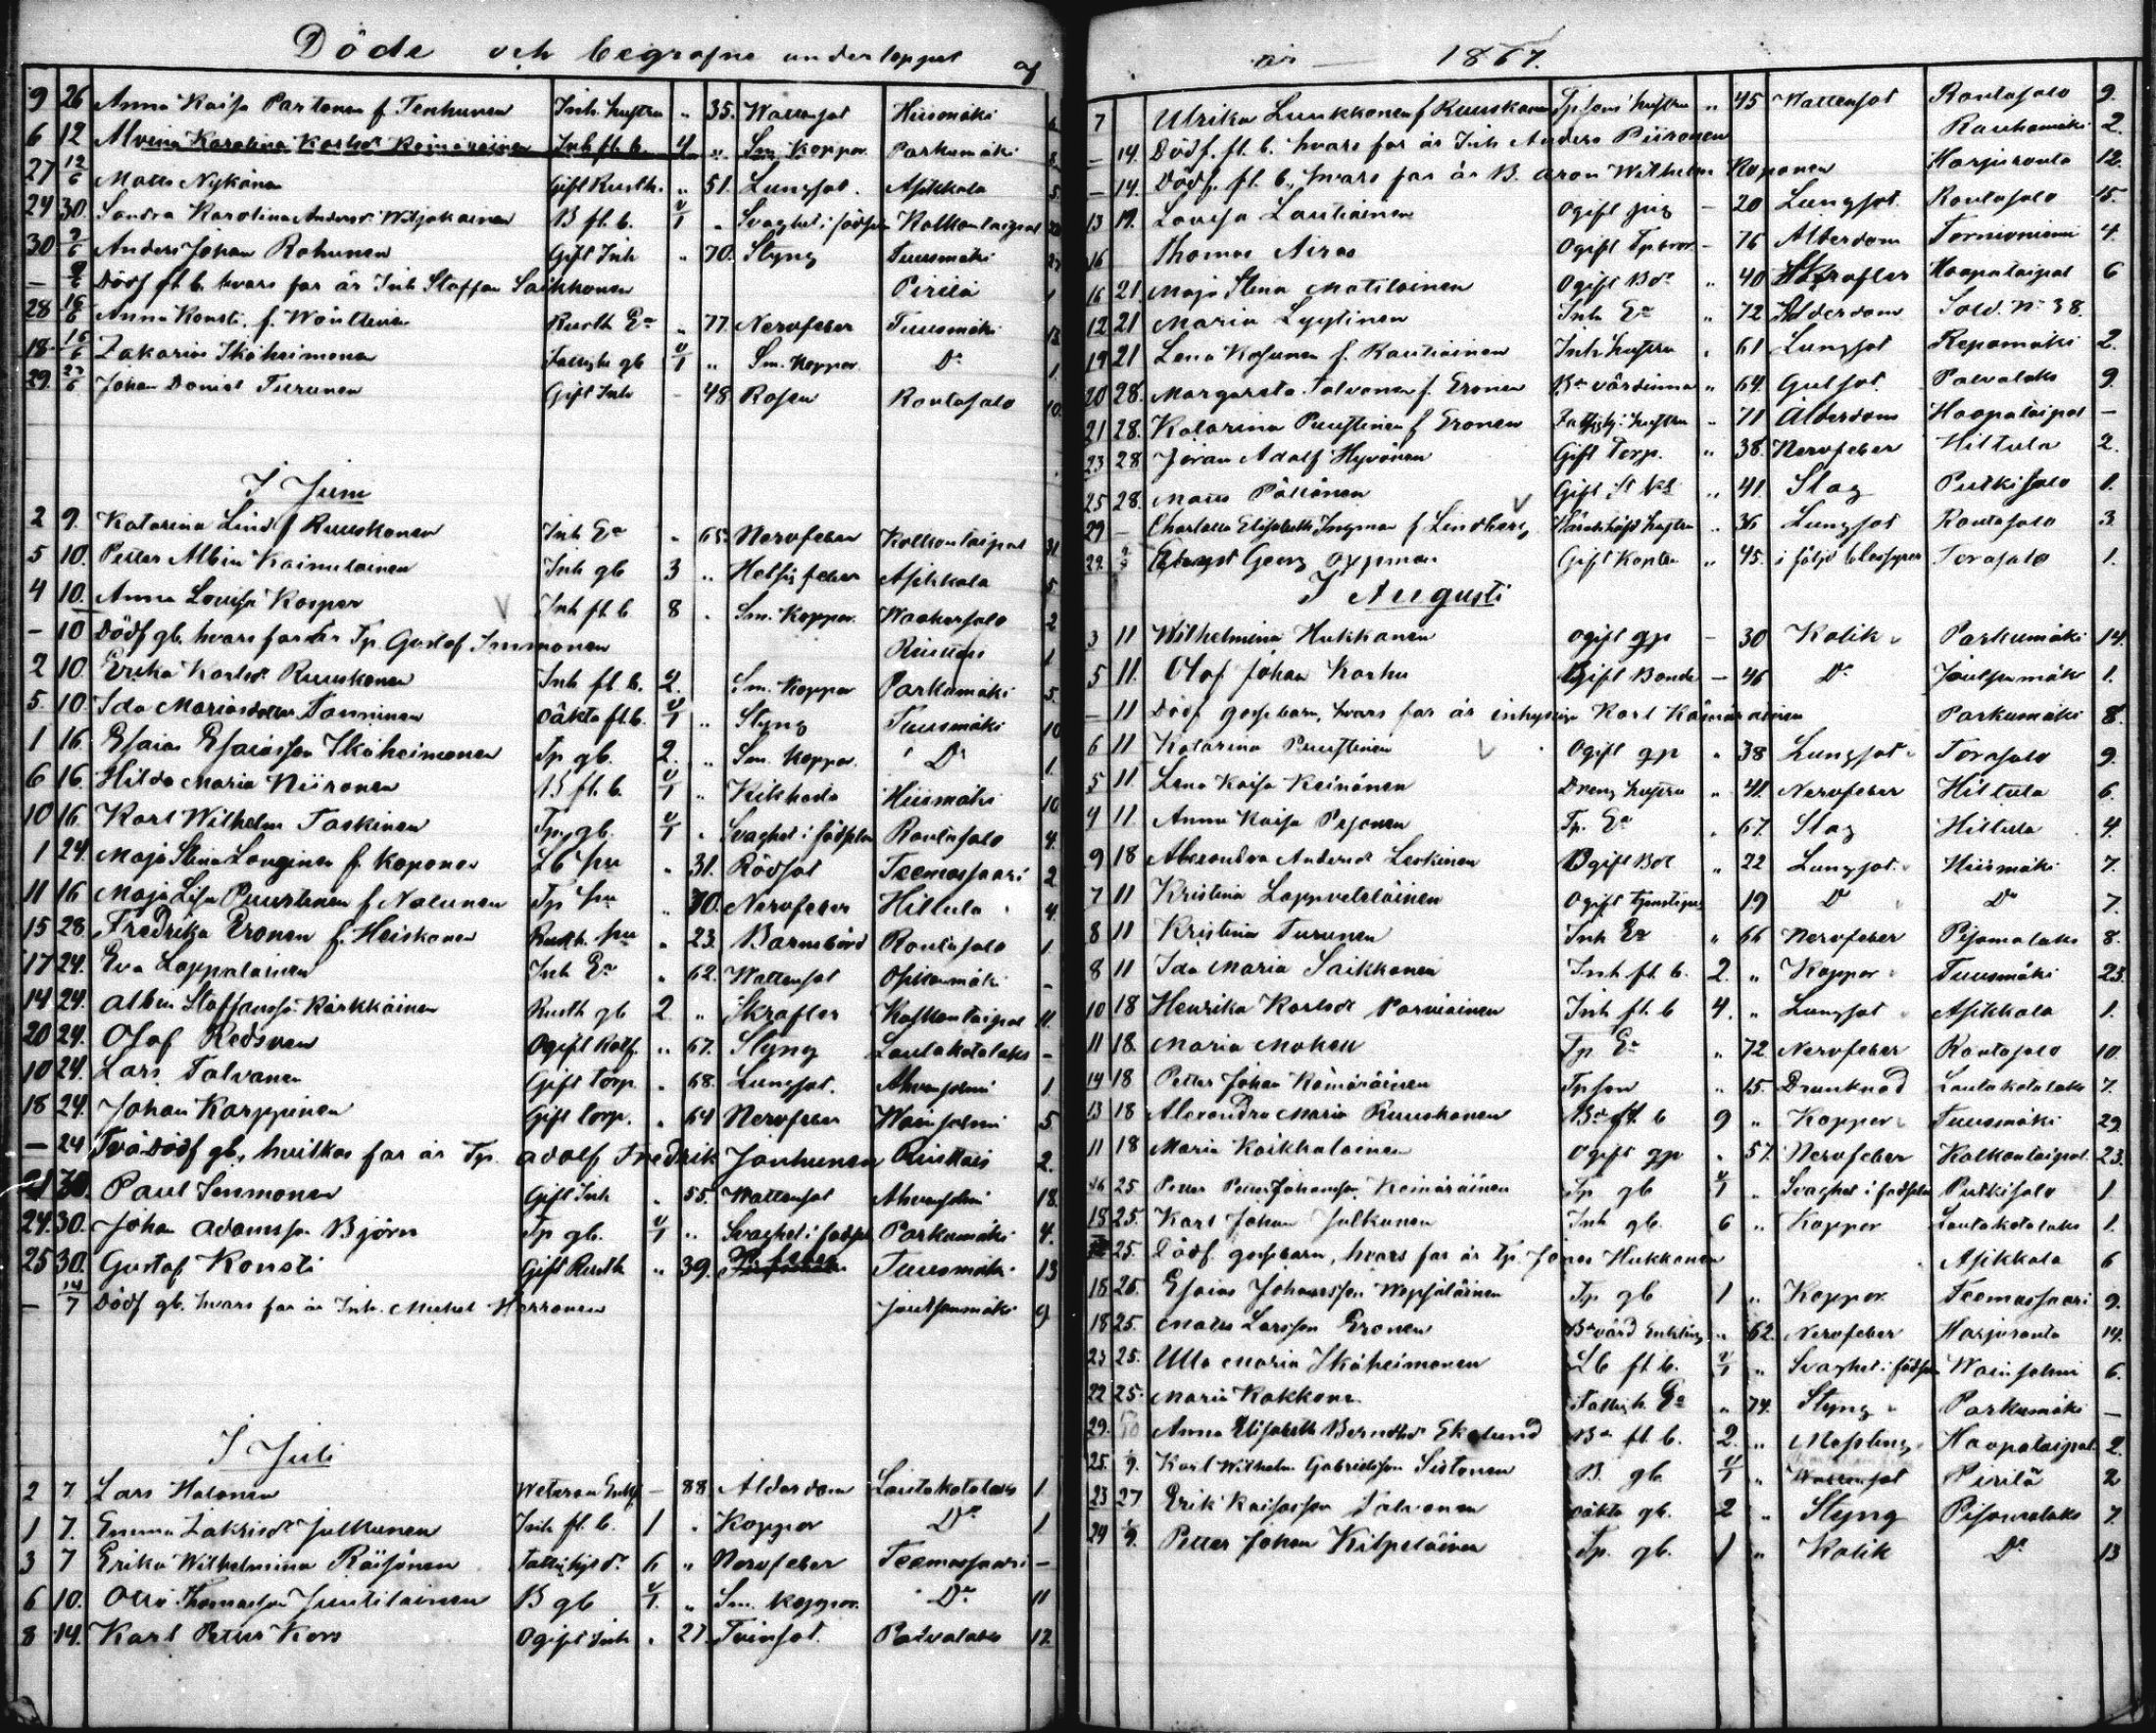 Döde och begrafne under loppet af
9 26 Anna Kaisa Partanen f. Tenhunen Inh. hustru " 35. Wattusot Hiismäki
6 12 Alvina Karolina Karlsdr Kämäräinen Inh fl. b. 4 " Sm. Koppor Parkumäki
27 12/6 Matts Nykänen Gift Rusth. " 51. Lungsot. Asikkala 5
24 30. Sandra Karolina Andersdr B fl. b. v/1 " Svaghet i födseln Kolkontaipal
30 Anders Johan Rahunen Gift Inh " 70. Styng Tuusmäki
— Dödf fl b. hvars far är Inh Staffan Saikkonen Pirilä 1
28 16/6 Anna Konsti f. Rusth Ea " 77. Nervfeber Tuusmäki
18 16/6 Zakarias Ikäheimonen Fattigh gb v/1 " Sm. Koppor Do 1.
29. 23/6 Johan Daniel Turunen Gift Inh - 48. Rosen Rantasalo 10.
I Juni
2 9. Katarina Lind f Ruuskonen Inh Ea " 65. Nervfeber Kolkontaipal 31
5 10. Petter Albin Kaimulainen Inh gb 3 " Hetsig feber Asikkala 5
4 10. Anna Lovisa Kosper Inh fl. b 8 " Sm. Koppor. Waahersalo 2
- 10 Dödf gb. hvars far är Tp. Gustaf Immonen 1
2 10. Erika Karlsdr Ruuskonen Inh fl. b. 2. Sm. Koppor Parkumäki 5.
5. 10. Ida Mariasdotter Tanninen oäkta fl. b. v/1 " Styng Tuusmäki 10
1 16. Esaias Esaiasson Ikäheimonen Tp gb. 2. " Sm. Koppor. Do 1.
6 16. Hilda Maria Niironen B fl. b. v/1 " Kikhosta Hiismäki 10
10 16. Karl Wilhelm Taskinen Tp. gb. v/1 " Svaghet i födseln Rantasalo 4.
1 24. Maja Stina Longinen f. Koponen Lb hu " 31. Rödsot Teemassaari 2
11 16 Maja Lisa Puustinen f Nalunen Tp hu " 30. Nervfeber Hiltula 4.
15 28. Fredrika Eronen f. Heiskanen Rusth. hu " 23. Barnsbörd Rantasalo 1.
17 24. Eva Loppalainen Inh Ea " 62. Wattusot -
14 24. Albin Staffansson Kärkkäinen Rusth gb 2 " Skrafler Kolkontaipal 11.
20 24. Olof Redsven Ogift " 67. Styng Lautakotalaks -
10 24. Lars Talvanen Gift torp. " 68. Lungsot. Ahvensalmi 1
18 24. Johan Karppinen Gift torp. " 64 Nervfeber Wainsalmi 5
— 24 Två Dödf gb, hvilkas far är Tp. Adolf Fredrik Jauhunen 2.
21 30. Paul Immonen Gift Inh " 55. Wattusot Ahvensalmi 18.
24. 30. Johan Adamsson Björn Tp gb. v/1 " Svaghet i födsel Parkumäki 4.
25 30. Gustaf Konsti Gift Rusth " 39. Tuusmäki 13
— 14/7 Dödf gb. hvars far är Inh. Michel Harronen Joutsenmäki 9
I Juli
2 7. Lars Halonen Weteran Enkl. - 88. Alderdom Lautakotalaks 1
1 7. Emma Zakrisdr Julkunen Inh fl. b. 1 " Koppor Do 1
3 7 Erika Wilhelmina Räisänen 6 " Nervfeber Teemassaari -
6 10. Otto Thomasson Juutilainen B gb v/1. " Sm. koppor. Do 11
8 14. Karl Petter Kors Ogift Inh " 27. Tvinsot. Patvalaks 12
år — 1867.
7 Ulrika Luukkonen f Ruuskonen hustru " 45 Wattusot Rantasalo 9.
— 14. Dödf. fl. b. hvars far är Inh Anders Piironen Rauhamäki 2.
— 14. Dödf. fl. b. hvars far är B. Aron Wilhelm Koponen Harjuranta 12.
13 19. Lovisa Lautiainen Ogift pig - 20 Lungsot. Rantasalo 15.
16 Thomas Airas Ogift - 76 Ålderdom Torniоniemi 4.
16 21 Maja Stina Matilainen Ogift " 40 Skrafler Haapataipal 6
12 21 Maria Lyytinen Inh Ea " 72 Ålderdom Sold. No 38.
19 21 Lena Kosunen f. Rautiainen Inh hustru " 61 Lungsot Repomäki 2.
20 28. Margareta Talvanen f. Eronen värdinna " 64. Gulsot. Patvalaks 9.
21 28. Katarina Puustinen f Eronen hustru " 71 Ålderdom Haapataipal -
23 28 Göran Adolf Hyvönen Gift Torp. " 38. Nervfeber Hiltula 2.
25 28. Matts Pöllänen Gift " 41. Slag Putkisalo 1.
29 — Charlotta Elisabeth Ingman f Lindberg hustru " 36 Lungsot Rantasalo 3.
29. Georg Gift " 45. i följd Torasalo 1.
I Augusti
3 11 Wilhelmina Hukkanen ogift qp - 30 Kolik Parkumäki 14.
5 11. Olof Johan Karhu Ogift Bonde - 46 Do Joutsenmäk 1.
— 11 Dödf. gossebarn, hvars far är inhysing Karl Kämäräinen Parkumäki 8.
6 11 Katarina Puustinen Ogift qp " 38 Lungsot Torasalo 9.
5 11. Lena Kaisa Keinänen Dreng hustru " 41. Nervfeber Hiltula 6.
4 11 Anna Kaisa Pesonen Tp. Ea " 67. Slag Hiltula 4.
9 18 Alexandra Andersdr Leskinen " 22 Lungsot. Hiismäki 7.
7 11 Kristina Lappveteläinen Ogift 19 Do Do 7.
8 11 Kristina Turunen Inh Ea " 66 Nervfeber Pisamalaks 8.
8 11 Ida Maria Saikkonen Inh fl. b. 2. " Koppor Tuusmäki 23
10 18 Henrika Karlsdr Parviainen Inh fl. b 4. " Lungsot Asikkala 1.
11 18. Maria Makell Tp Ea " 72 Nervfeber Rantasalo 10.
14 18 Petter Johan Kämäräinen Tp son " 15. Drunknad Lautakotalaks 7.
13 18 Alexandra Maria Ruuskonen fl. b 9 " Koppor Tuusmäki 29.
11 18 Maria Kaikkalainen Ogift qp " 57. Nervfeber Kolkontaipal 23.
25. Petter Petter Johansson Kämäräinen Tp gb v/1 " Svaghet i födseln Putkisalo 1
18 25. Karl Johan Julkunen Inh gb. 6 " Koppor Lautakotalaks 1.
25. Dödf. gossebarn, hvars far är Tp. Jonas Hukkanen Asikkala 6
18 25. Esaias Johansson Tp gb 1 " Koppor Teemassaari 9.
18 25. Matts Larsson Eronen " 62. Nervfeber Harjuranta 14.
23 25. Ulla Maria Ikäheimonen Lb fl. b. v/1 " Svaghet i födseln Wainsalmi 6.
22 25. Maria Kakkonen Fattigh. Ea " 74. Styng Parkumäki —
29. Anna Elisabeth Berndtsdr Ekelund fl. b. 2. " Messling Haapataipal 2.
25. 1/9. Karl Wilhelm Gabrielsson Sistonen B. gb v/1 " Pirilä 2
23 27 Erik Kaisasson Talvanen oäkta gb. 2 " Styng Pisamalaks 7.
24 1/9. Petter Johan Kilpeläinen Tp. gb. 1 " Kolik Do 13